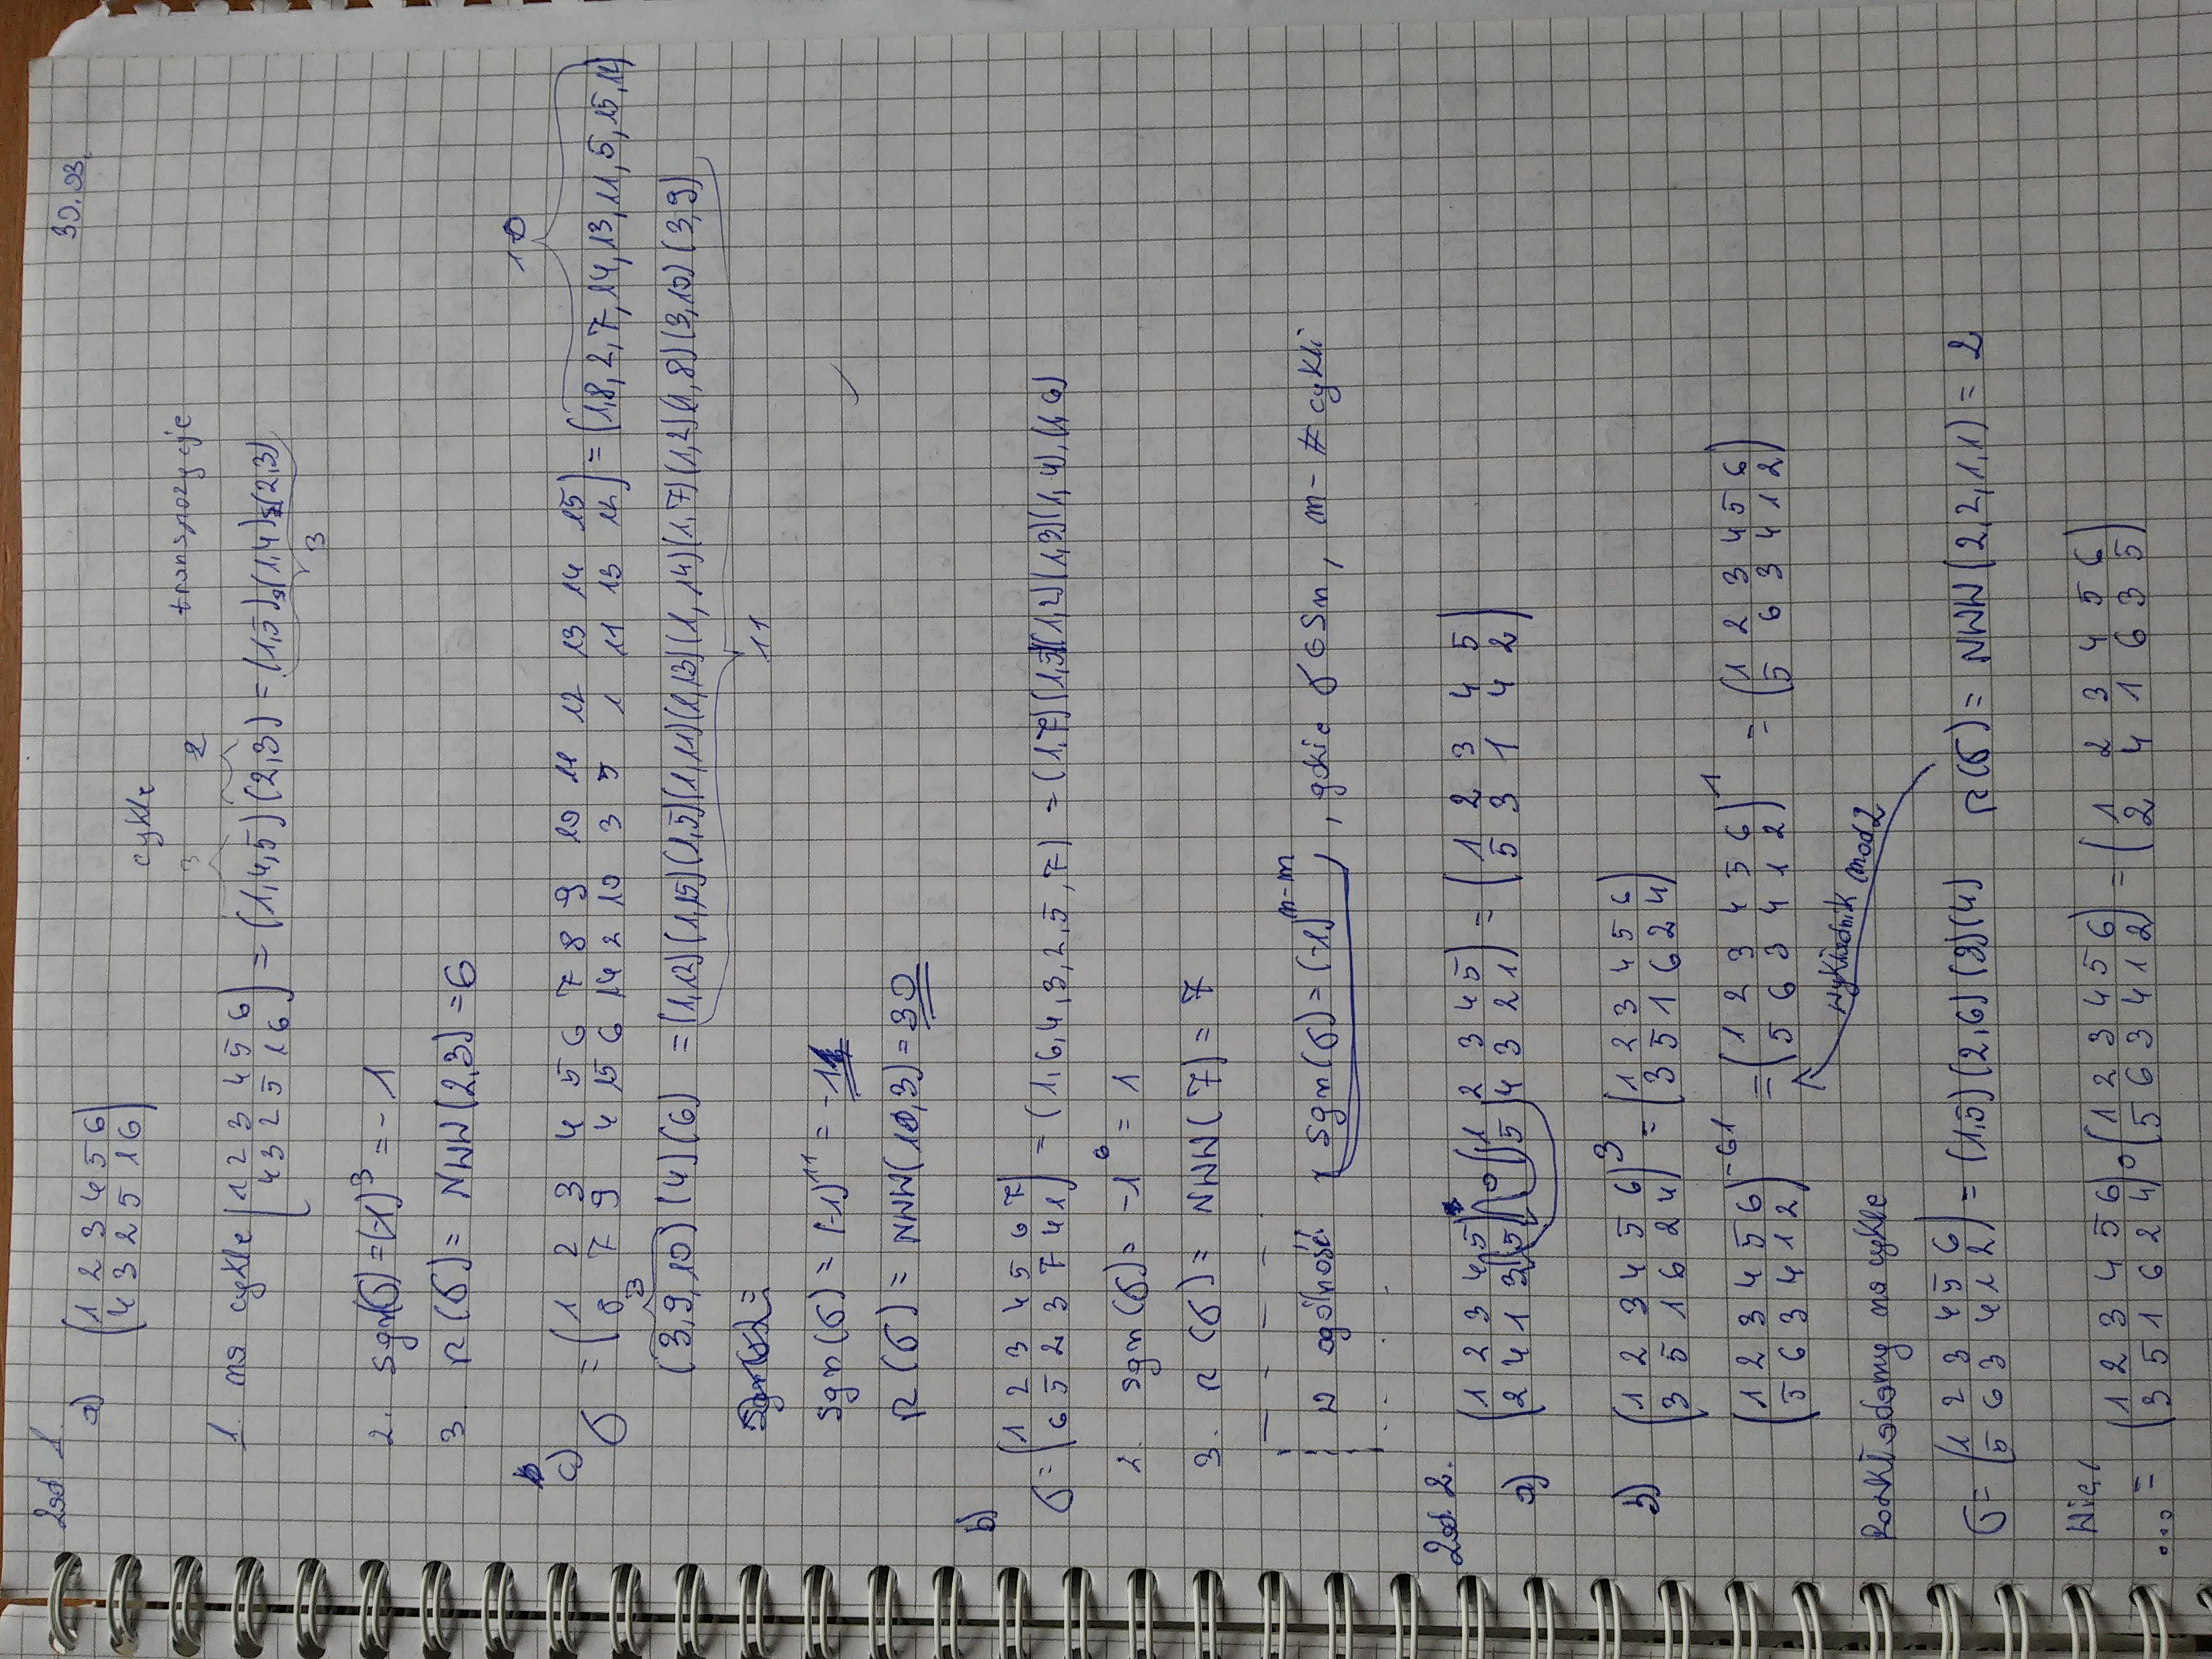 Zad 1.
30.03.
a) (1 2 3 4 5 6
4 3 2 5 1 6)
cykle
transpozycje
3 2
1. na cykle (1 2 3 4 5 6
4 3 2 5 1 6) = (1,4,5) (2,3) = (1,5) (1,4) (2,3)
3
2. sgn(σ) = (-1)³ = -1
3. r(σ) = NWW(2,3) = 6
10
c) σ = (1 2 3 4 5 6 7 8 9 10 11 12 13 14 15
8 7 9 4 15 6 14 2 10 3 5 1 11 13 12) = (1,8,2,7,14,13,11,5,15,12)
3
(3,9,10) (4) (6) = (1,12) (1,15) (1,5) (1,11) (1,13) (1,14) (1,7) (1,2) (1,8) (3,10) (3,9)
11
sgn(σ) = (-1)¹¹ = -1
r(σ) = NWW(10,3) = 30
b)
σ = (1 2 3 4 5 6 7
6 5 2 3 7 4 1) = (1,6,4,3,2,5,7) = (1,7) (1,5) (1,2) (1,3) (1,4), (1,6)
2. sgn(σ) = -1⁶ = 1
3. r(σ) = NWW(7) = 7
W ogólności sgn(σ) = (-1)ⁿ⁻ᵐ, gdzie σ ∈ Sn, m - # cykli
Zad. 2.
a) (1 2 3 4 5
2 4 1 3 5) ∘ (1 2 3 4 5
5 4 3 2 1) = (1 2 3 4 5
5 3 1 4 2)
b) (1 2 3 4 5 6
3 5 1 6 2 4)³ = (1 2 3 4 5 6
3 5 1 6 2 4)
(1 2 3 4 5 6
5 6 3 4 1 2)⁻⁶¹ = (1 2 3 4 5 6
5 6 3 4 1 2)⁻¹ = (1 2 3 4 5 6
5 6 3 4 1 2)
wykładnik mod 2
Rozkładamy na cykle
σ = (1 2 3 4 5 6
5 6 3 4 1 2) = (1,5) (2,6) (3) (4) r(σ) = NWW(2,2,1,1) = 2
Więc
... = (1 2 3 4 5 6
3 5 1 6 2 4) ∘ (1 2 3 4 5 6
5 6 3 4 1 2) = (1 2 3 4 5 6
2 4 1 6 3 5)